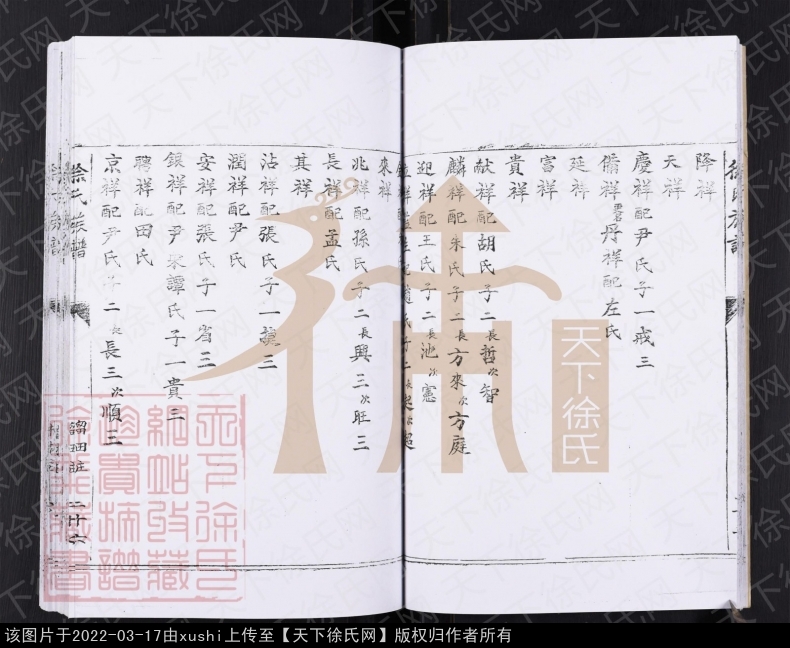 徐氏族譜
降祥
天祥
慶祥配尹氏子一戒三
脩祥 更名丹祥配左氏
延祥
富祥
貴祥
献祥配胡氏子二長哲次智
麟祥配朱氏子二長方來次方庭
迎祥配王氏子二長池次憲
來祥
兆祥配孫氏子二長興三次旺三
長祥配孟氏
其祥
沾祥配張氏子一 三
潤祥配尹氏
安祥配張氏子一省三
銀祥配尹 譚氏子一貴三
聘祥配田氏
京祥配尹氏子二長長三次順三
徐氏族譜
二十六
天下徐氏
天下徐氏网
该图片于2022-03-17由xushi上传至【天下徐氏网】版权归作者所有